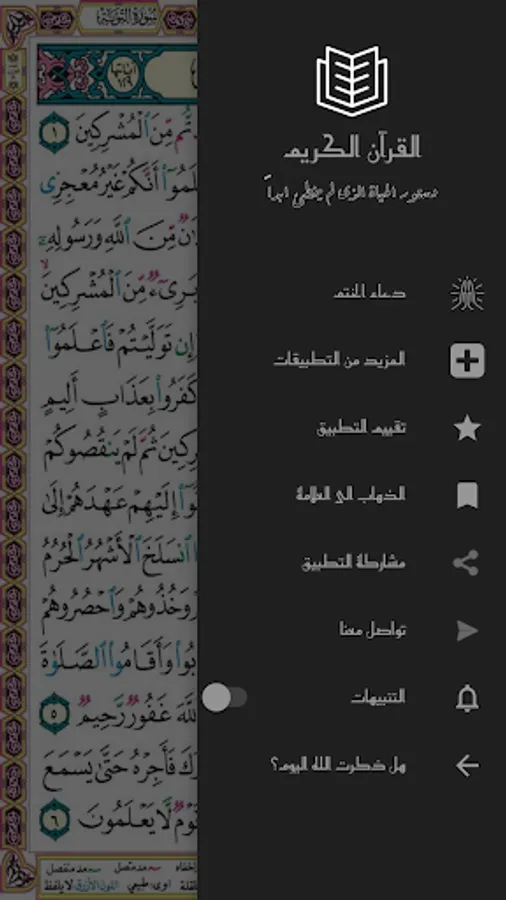 سورة التوبة
اياتها
١٢٩
تُم مِّنَ ٱلْمُشْرِكِينَ ١
أَنَّكُمْ غَيْرُ مُعْجِزِى
مِّنَ ٱللَّهِ وَرَسُولِهِ
بَرِىٓءٌ مِّنَ ٱلْمُشْرِكِينَ
تَوَلَّيْتُمْ فَٱعْلَمُوٓا۟
كَفَرُوا۟ بِعَذَابٍ أَلِيمٍ
ثُمَّ لَمْ يَنقُصُوكُمْ
إِلَيْهِمْ عَهْدَهُمْ إِلَىٰ
ٱنسَلَخَ ٱلْأَشْهُرُ ٱلْحُرُمُ
وَخُذُوهُمْ وَٱحْصُرُوهُمْ
وَأَقَامُوا۟ ٱلصَّلَوٰةَ
غَفُورٌ رَّحِيمٌ ٥
فَأَجِرْهُ حَتَّىٰ يَسْمَعَ
لَّا يَعْلَمُونَ ٦
القرآن الكريم
دستور الحياة الذى لم يخطئ ابداً
دعاء الختم
المزيد من التطبيقات
تقييم التطبيق
الذهاب الى العلامة
مشاركة التطبيق
تواصل معنا
التنبيهات
هل ذكرت الله اليوم؟